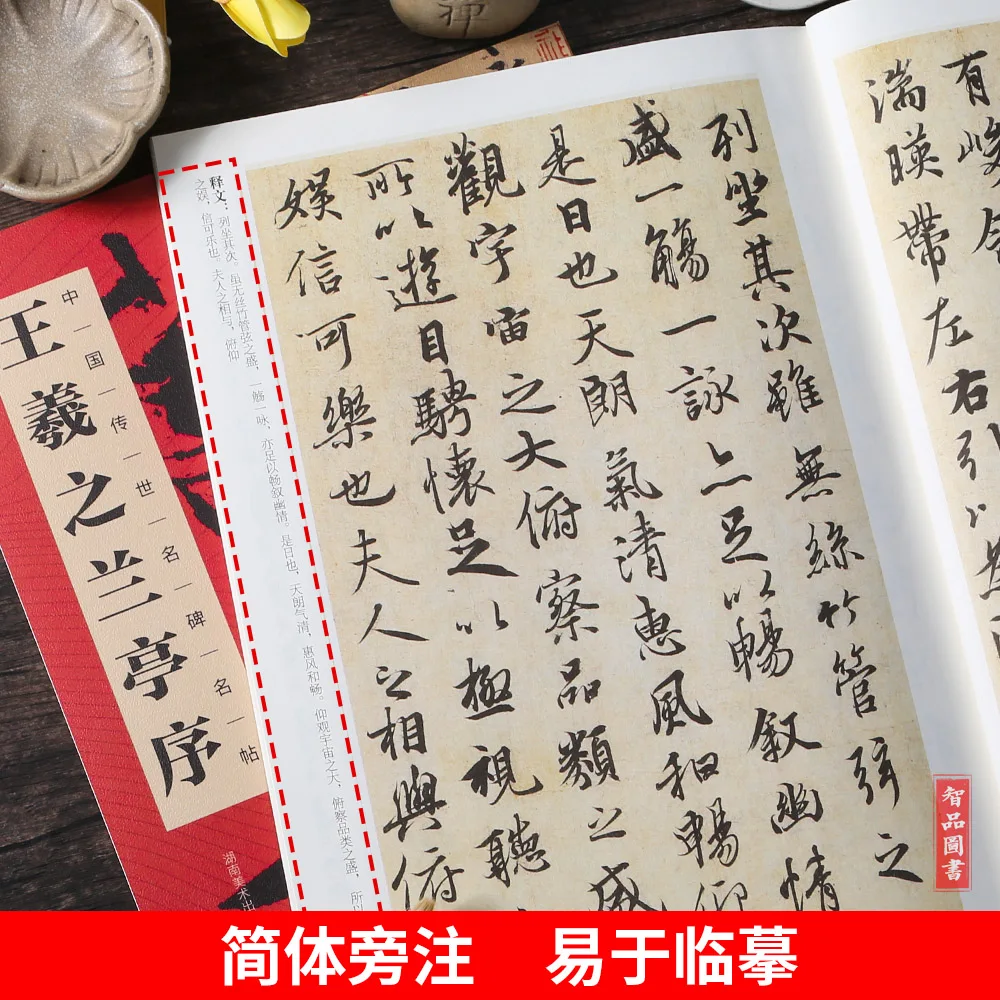 禅
中国传世名碑名帖
王羲之兰亭序
湖南美术出
释文：列坐其次。虽无丝竹管弦之盛，一觞一咏，亦足以畅叙幽情。是日也，天朗气清，惠风和畅。仰观宇宙之大，俯察品类之盛，所以
之娱，信可乐也。夫人之相与，俯仰
有峻
湍暎帶左右引以
列坐其次雖無絲竹管弦之
盛一觴一詠亦足以暢叙幽情
是日也天朗氣清惠風和暢仰
觀宇宙之大俯察品類之盛
所以遊目騁懷足以極視聽
娛信可樂也夫人之相與俯
智品圖書
简体旁注 易于临摹